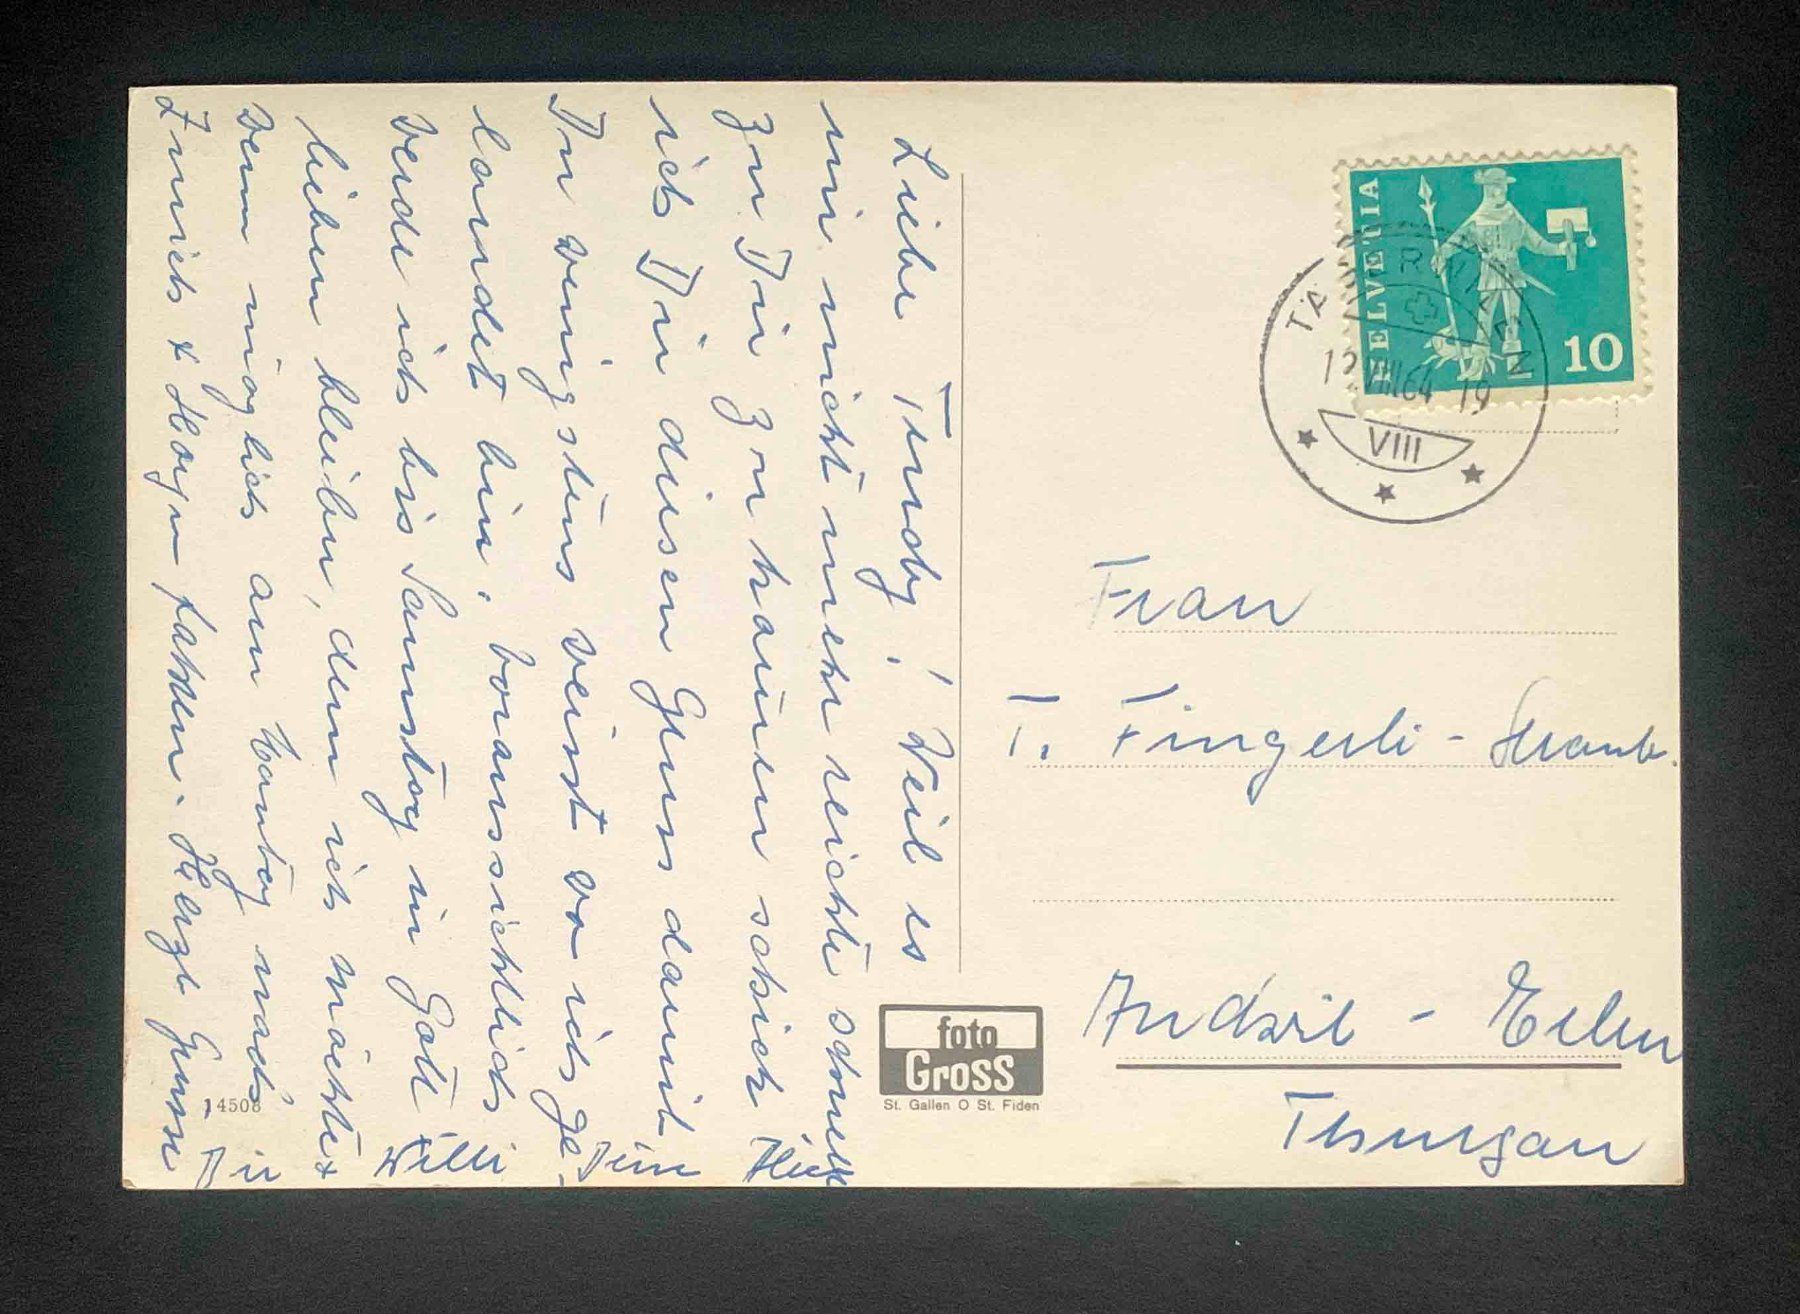 HELVETIA
10
TÄGERWILEN
12.VIII.64 19
VIII
Liebe Trudy! Weil es
mir nicht mehr reichte schnell
zu Dir zu schick
ich Dir diesen Gruss damit
Du wenigstens weist wo ich ge-
landet bin. Voraussichtlich
werde ich bis Samstag in Gott
lieben bleiben, denn ich möchte
wenn möglich am nach
Zürich + fahren. Herzl Grüsse
Dir + Willi Deine
Frau
T. Fingerli - Straub.
Andwil - Erlen
Thurgau
foto
Gross
St. Gallen O St. Fiden
14508